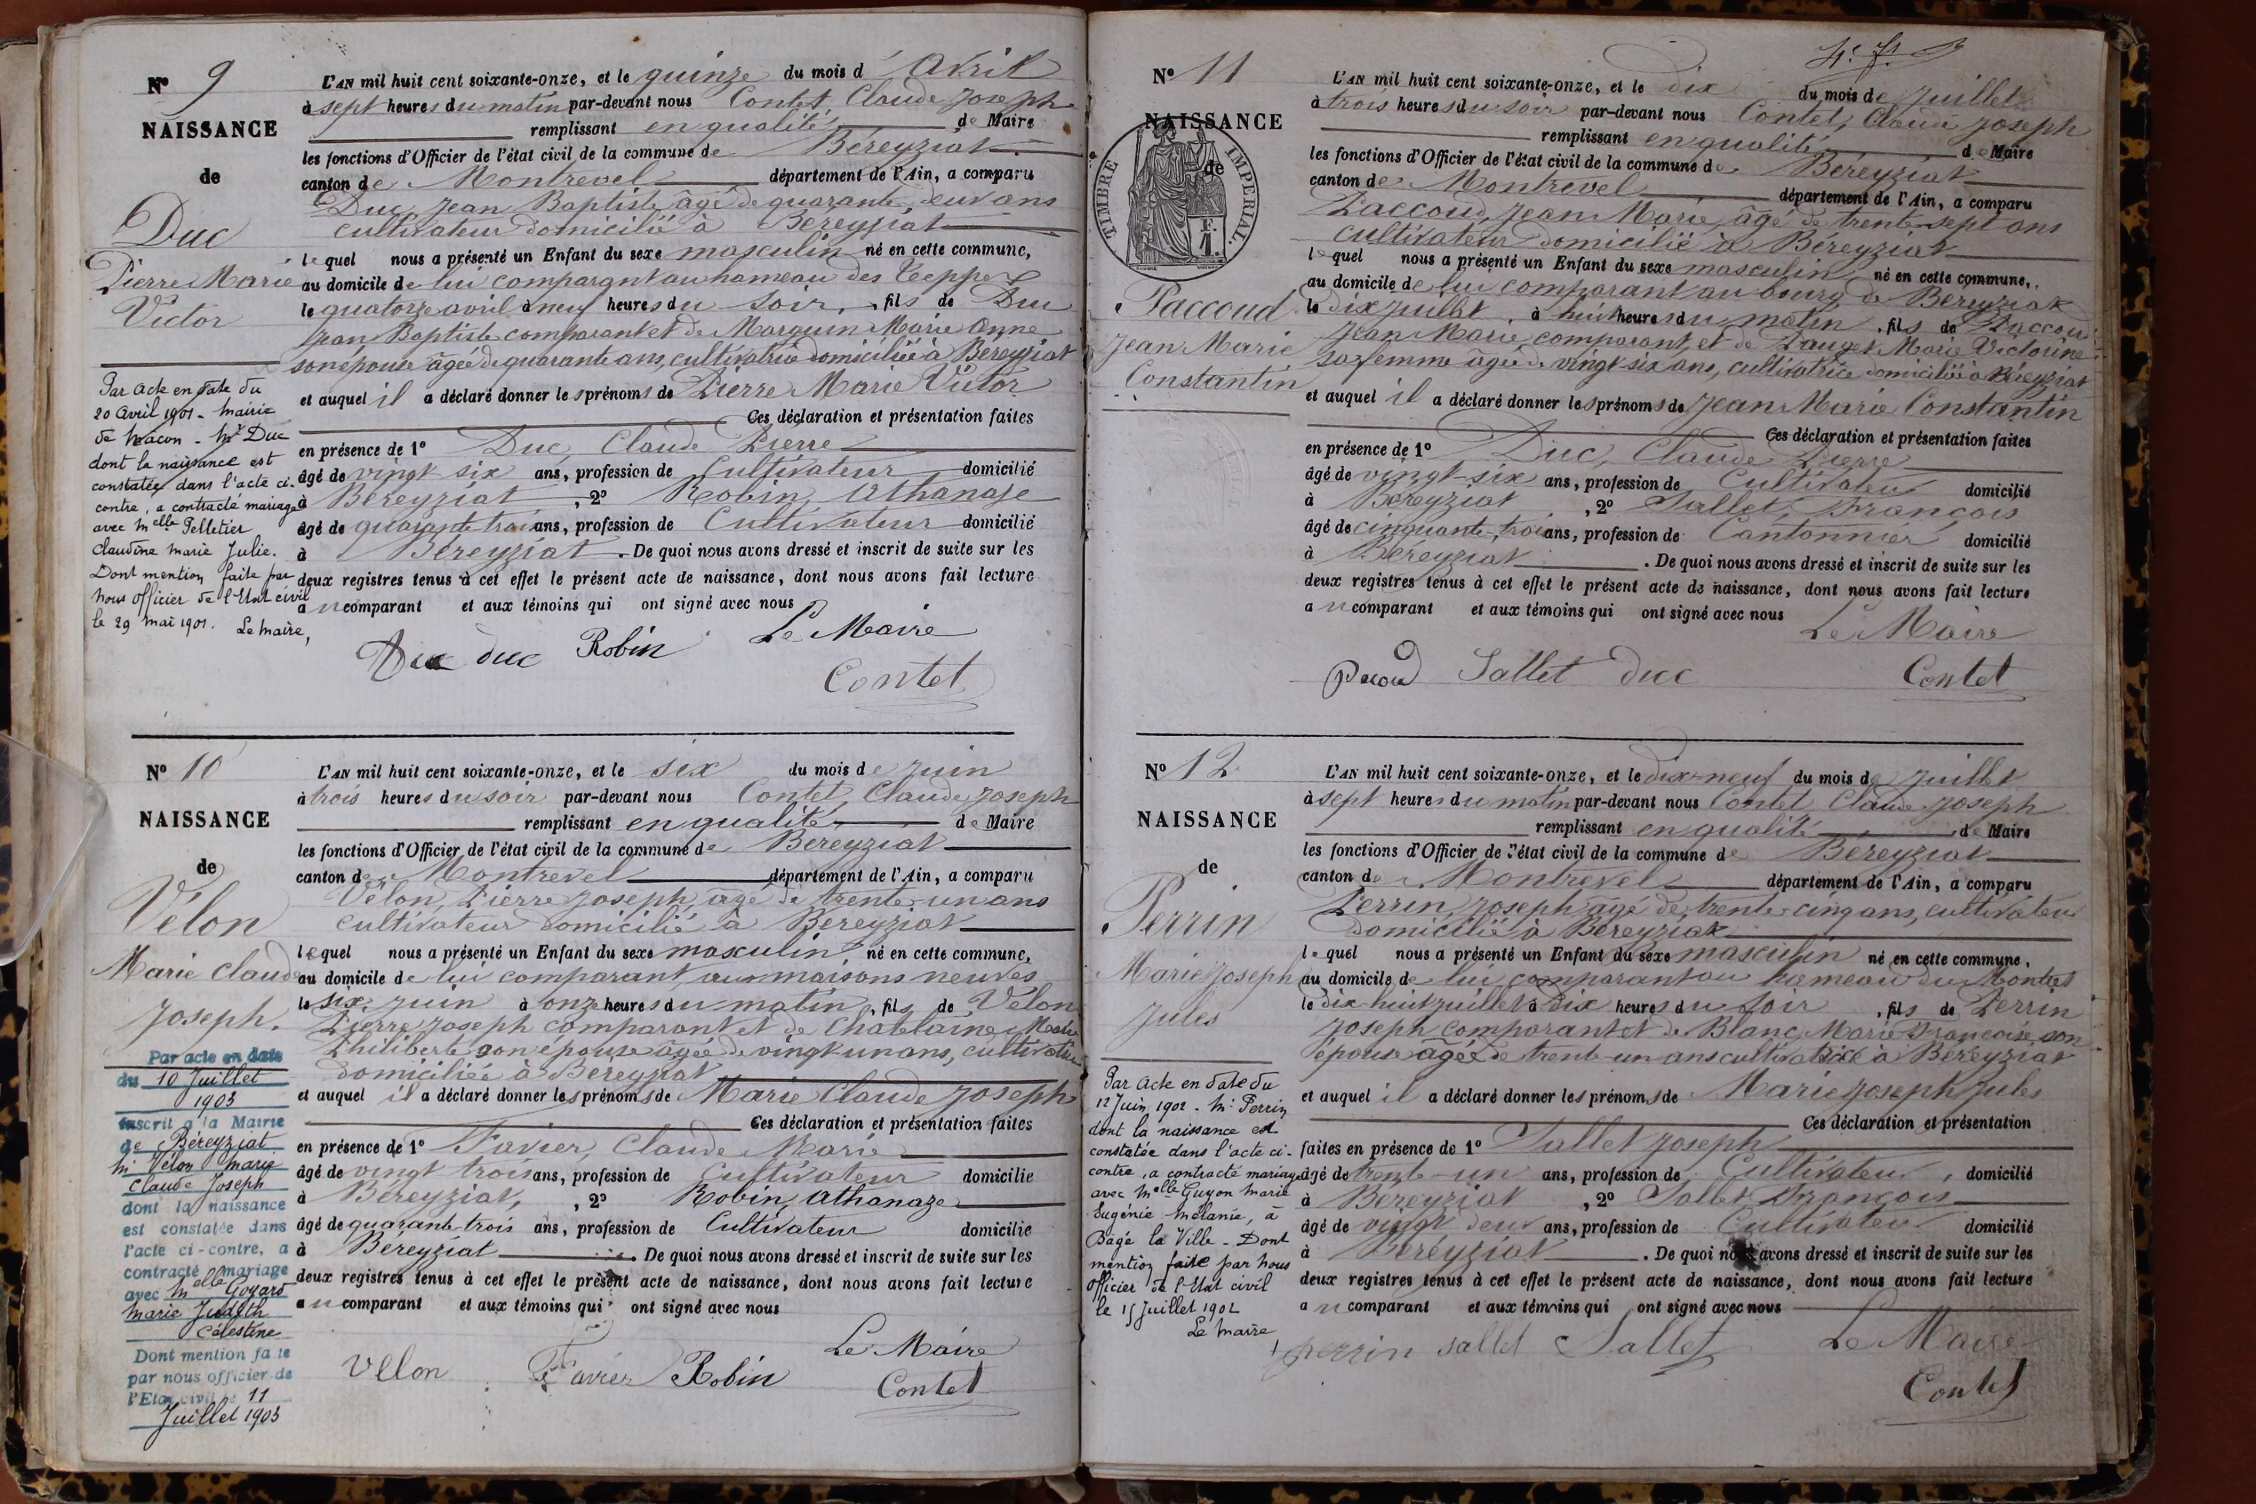 N° 9
NAISSANCE
de
Duc
Pierre Marie
Victor
Par acte en date du
20 Avril 1901 - Mairie
de Macon - Mr Duc
dont la naissance est
constatée dans l'acte ci-
contre, a contracté mariage
avec Melle Pelletier
Claudine Marie Julie.
Dont mention faite par
Nous officier de l'Etat civil
le 29 Mai 1901. Le Maire,
L'AN mil huit cent soixante-onze, et le quinze du mois d'Avril
à sept heures du matin par-devant nous Contet, Claude Joseph
remplissant en qualité de Maire
les fonctions d'Officier de l'état civil de la commune de Béreyziat
canton de Montrevel département de l'Ain, a comparu
Duc, Jean Baptiste, âgé de quarante deux ans
cultivateur domicilié à Béreyziat
lequel nous a présenté un Enfant du sexe masculin né en cette commune,
au domicile de lui comparant au hameau des Teppes
le quatorze avril à neuf heures du soir, fils de Duc
Jean Baptiste comparant et de Marguin Marie Anne
son épouse âgée de quarante ans, cultivatrice domiciliée à Béreyziat
et auquel il a déclaré donner les prénoms de Pierre Marie Victor
Ces déclaration et présentation faites
en présence de 1° Duc, Claude Pierre
âgé de vingt six ans, profession de Cultivateur domicilié
à Béreyziat, 2° Robin, Athanase
âgé de quarante trois ans, profession de Cultivateur domicilié
à Béreyziat. De quoi nous avons dressé et inscrit de suite sur les
deux registres tenus à cet effet le présent acte de naissance, dont nous avons fait lecture
au comparant et aux témoins qui ont signé avec nous
Duc duc Robin Le Maire
Contet
N° 10
NAISSANCE
de
Vélon
Marie Claude
Joseph.
Par acte en date
du 10 Juillet
1903
inscrit à la Mairie
de Béreyziat
Mr Vélon Marie
Claude Joseph
dont la naissance
est constatée dans
l'acte ci-contre, a
contracté mariage
avec Melle Goyard
Marie Judith
Célestine
Dont mention faite
par nous officier de
l'Etat civil le 11
Juillet 1903
L'AN mil huit cent soixante-onze, et le six du mois de juin
à trois heures du soir par-devant nous Contet, Claude Joseph
remplissant en qualité de Maire
les fonctions d'Officier de l'état civil de la commune de Béreyziat
canton de Montrevel département de l'Ain, a comparu
Vélon, Pierre Joseph, âgé de trente-un ans
cultivateur domicilié à Béreyziat
lequel nous a présenté un Enfant du sexe masculin né en cette commune,
au domicile de lui comparant, aux maisons neuves
le six juin à onze heures du matin, fils de Vélon
Pierre Joseph comparant et de Châtelaine, Marie
Philiberte son épouse âgée de vingt-un ans, cultivatrice
domiciliée à Béreyziat
et auquel il a déclaré donner les prénoms de Marie Claude Joseph
Ces déclaration et présentation faites
en présence de 1° Favier, Claude Marie
âgé de vingt trois ans, profession de Cultivateur domicilié
à Béreyziat, 2° Robin, Athanaze
âgé de quarante-trois ans, profession de Cultivateur domicilié
à Béreyziat. De quoi nous avons dressé et inscrit de suite sur les
deux registres tenus à cet effet le présent acte de naissance, dont nous avons fait lecture
au comparant et aux témoins qui ont signé avec nous
Le Maire
Velon Favier Robin Contet
N° 11
NAISSANCE
de
TIMBRE IMPERIAL.
F.
1.
Paccoud
Jean Marie
Constantin
L'AN mil huit cent soixante-onze, et le dix du mois de juillet
à trois heures du soir par-devant nous Contet, Claude Joseph
remplissant en qualité de Maire
les fonctions d'Officier de l'état civil de la commune de Béreyziat
canton de Montrevel département de l'Ain, a comparu
Paccoud, Jean Marie, âgé de trente-sept ans
cultivateur domicilié à Béreyziat
lequel nous a présenté un Enfant du sexe masculin, né en cette commune,
au domicile de lui comparant au bourg de Béreyziat
le dix juillet, à huit heures du matin, fils de Paccoud
Jean Marie, comparant, et de Pauget Marie Victorine
sa femme âgée de vingt-six ans, cultivatrice domiciliée à Béreyziat
et auquel il a déclaré donner les prénoms de Jean Marie Constantin
Ces déclaration et présentation faites
en présence de 1° Duc, Claude Pierre
âgé de vingt-six ans, profession de Cultivateur domicilié
à Béreyziat, 2° Sallet, François
âgé de cinquante-trois ans, profession de Cantonnier domicilié
à Béreyziat. De quoi nous avons dressé et inscrit de suite sur les
deux registres tenus à cet effet le présent acte de naissance, dont nous avons fait lecture
au comparant et aux témoins qui ont signé avec nous
Le Maire
Sallet duc Contet
N° 12
NAISSANCE
de
Perrin
Marie Joseph
Jules
Par acte en date du
12 Juin 1902 - Mr Perrin
dont la naissance est
constatée dans l'acte ci-
contre, a contracté mariage
avec Melle Guyon Marie
Eugénie Mélanie, à
Bagé la Ville - Dont
mention faite par Nous
officier de l'Etat civil
le 15 Juillet 1902
Le Maire
L'AN mil huit cent soixante-onze, et le dix-neuf du mois de juillet
à sept heures du matin par-devant nous Contet, Claude Joseph
remplissant en qualité de Maire
les fonctions d'Officier de l'état civil de la commune de Béreyziat
canton de Montrevel département de l'Ain, a comparu
Perrin, Joseph, âgé de trente-cinq ans, cultivateur
domicilié à Béreyziat
lequel nous a présenté un Enfant du sexe masculin né en cette commune,
au domicile de lui comparant au hameau du Montet
le dix-huit juillet à dix heures du soir, fils de Perrin
Joseph comparant et de Blanc, Marie Françoise son
épouse âgée de trente-un ans cultivatrice à Béreyziat
et auquel il a déclaré donner les prénoms de Marie Joseph Jules
Ces déclaration et présentation
faites en présence de 1° Sallet Joseph
âgé de trente-un ans, profession de Cultivateur, domicilié
à Béreyziat, 2° Sallet François
âgé de vingt deux ans, profession de Cultivateur domicilié
à Béreyziat. De quoi nous avons dressé et inscrit de suite sur les
deux registres tenus à cet effet le présent acte de naissance, dont nous avons fait lecture
au comparant et aux témoins qui ont signé avec nous
perrin sallet Sallet Le Maire
Contet